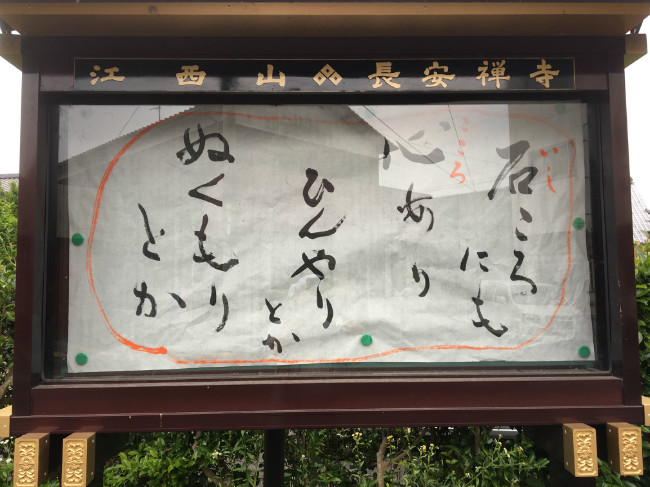 江西山 長安禅寺
石ころ
いし
にも
心あり
こころ
ひんやり
とか
ぬくもり
とか